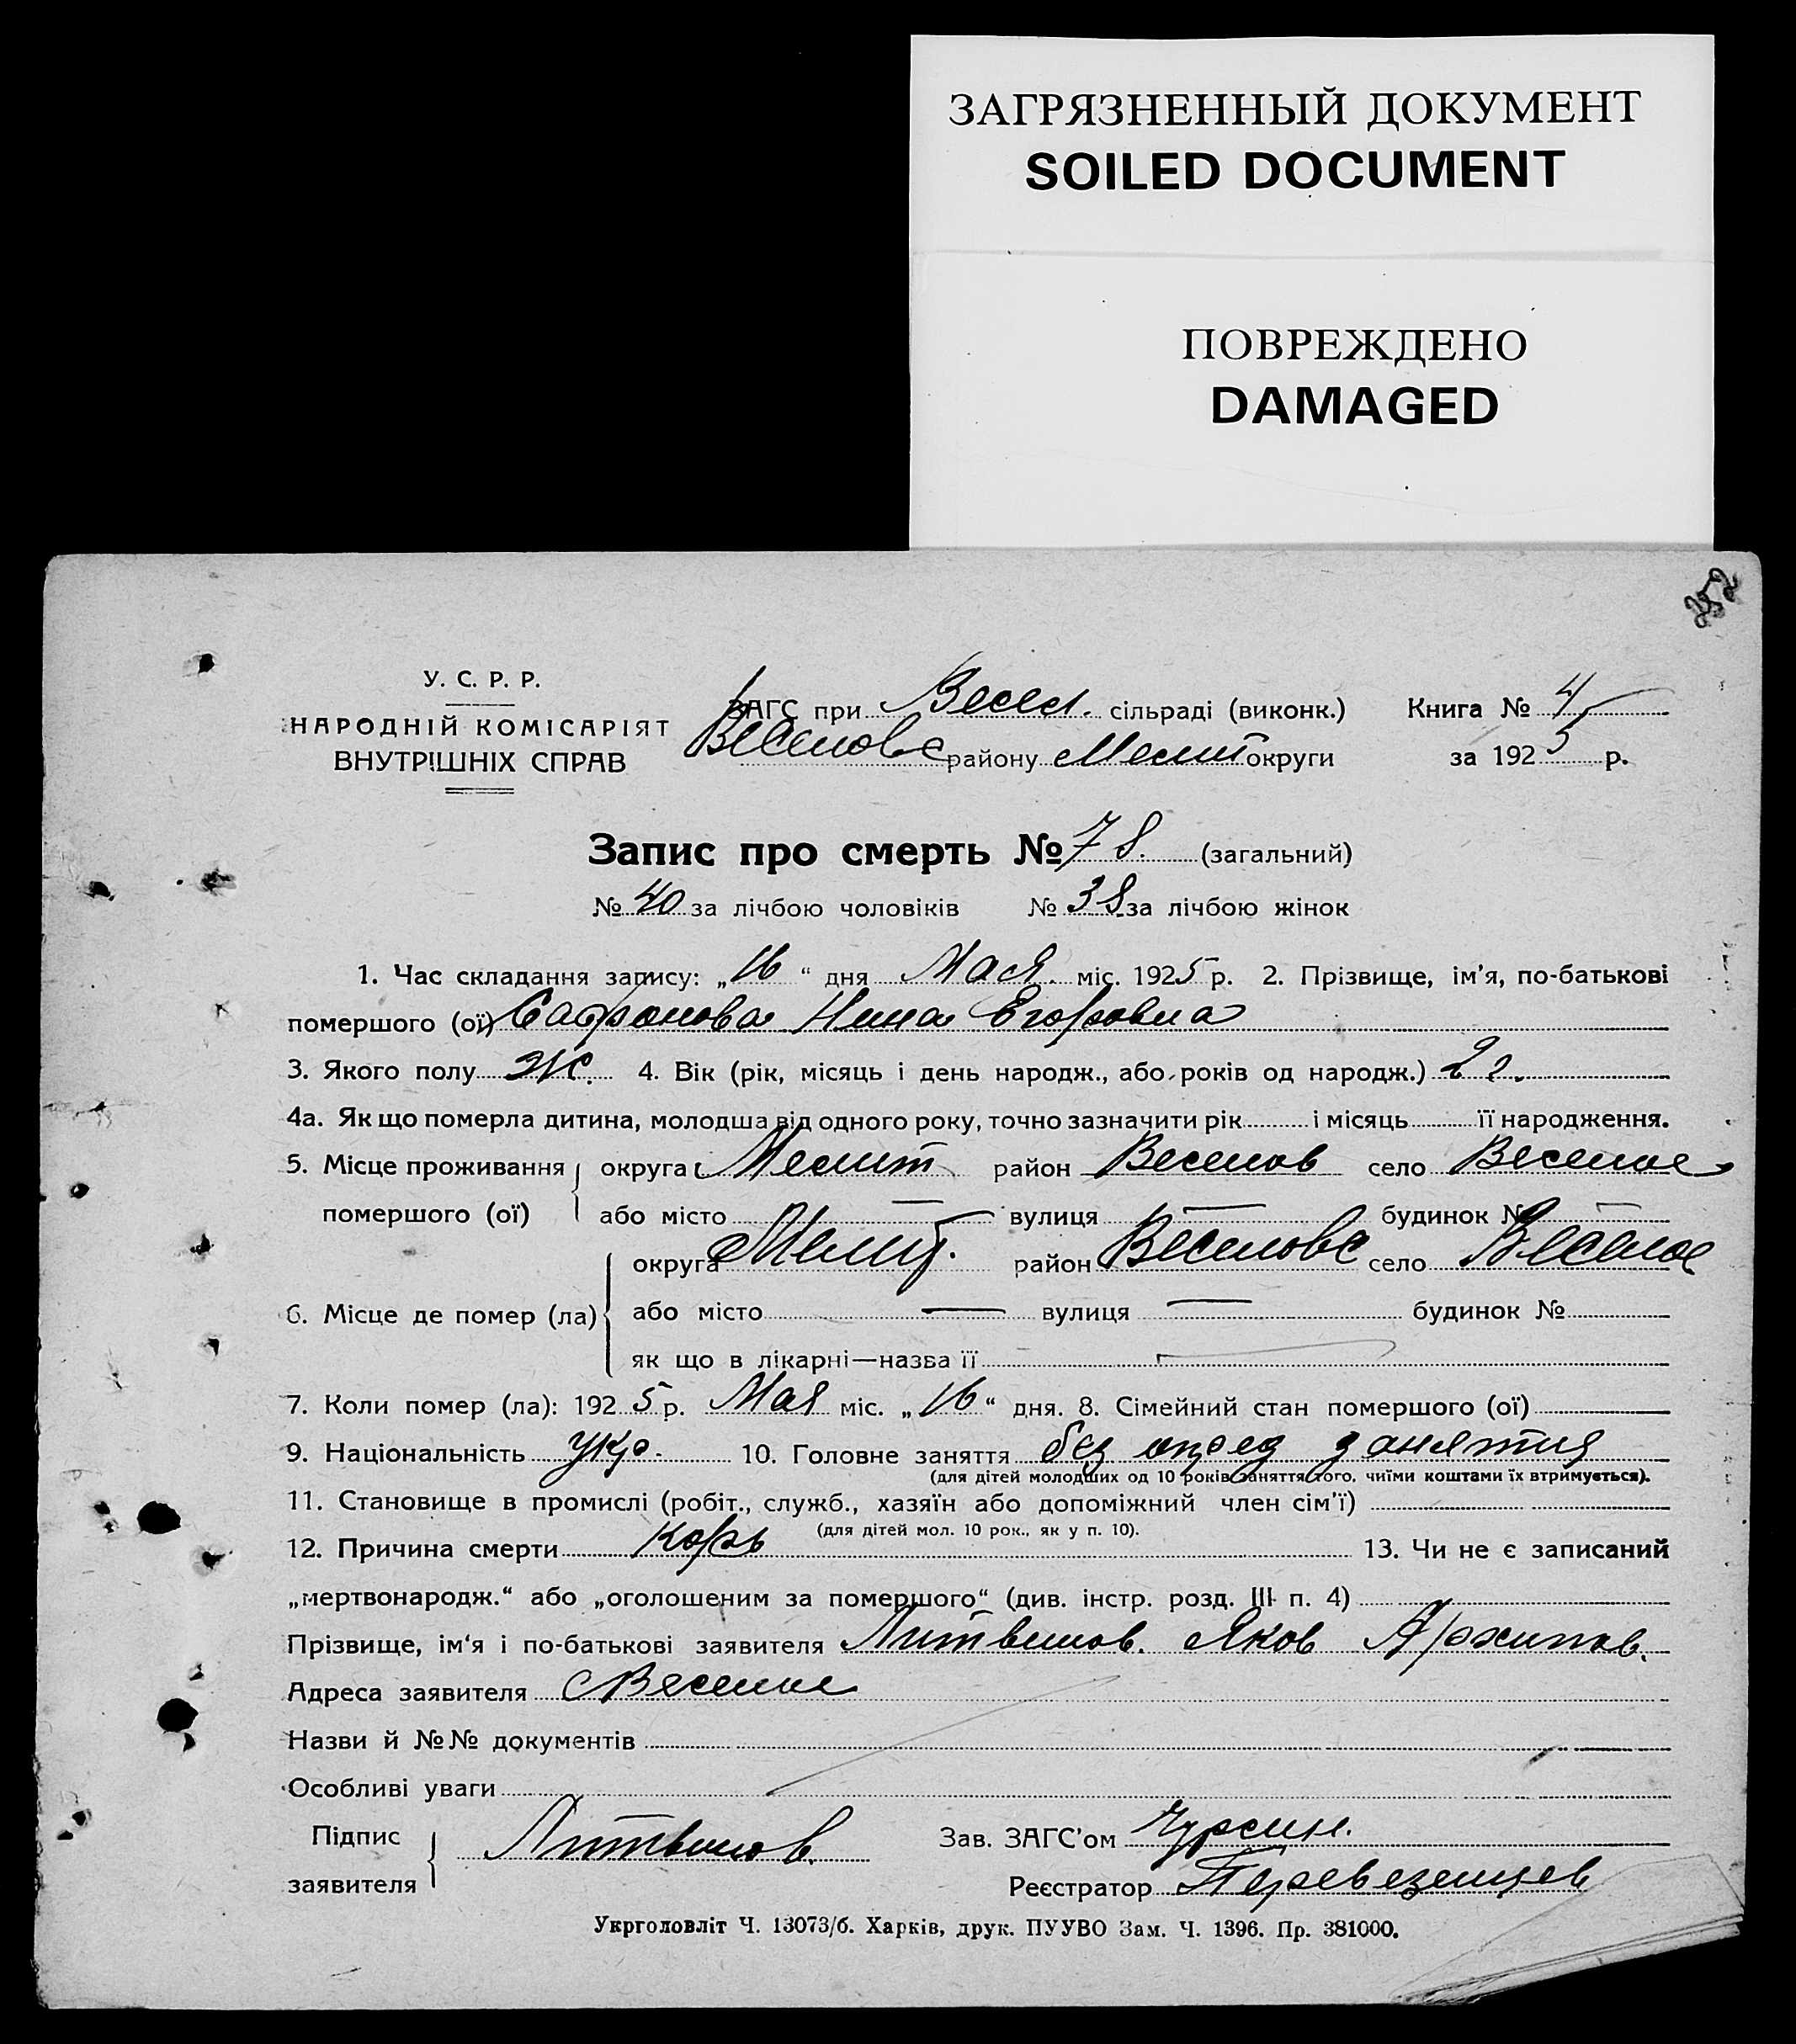 ЗАГРЯЗНЕННЫЙ ДОКУМЕНТ
SOILED DOCUMENT
ПОВРЕЖДЕНО
DAMAGED
252
У. С. Р. Р.
НАРОДНІЙ КОМІСАРІЯТ
ВНУТРІШНІХ СПРАВ
ЗАГС при Весел. сільраді (виконк.) Книга № 4
Веселовс району Мелит округи за 1925 р.
Запис про смерть № 78. (загальний)
№ 40 за лічбою чоловіків № 38 за лічбою жінок
1. Час складання запису: „16“ дня Мая міс. 1925 р. 2. Прізвище, ім’я, по-батькові
помершого (ої) Сафронова Нина Егоровна
3. Якого полу ж. 4. Вік (рік, місяць і день народж., або років од народж.) 2 г.
4а. Як що померла дитина, молодша від одного року, точно зазначити рік і місяць її народження.
5. Місце проживання округа Мелит район Веселов село Веселое
помершого (ої) або місто — вулиця — будинок № —
округа Мелит. район Веселовс село Веселое
6. Місце де помер (ла) або місто — вулиця — будинок №
як що в лікарні—назва її
7. Коли помер (ла): 1925 р. Мая міс. „16“ дня. 8. Сімейний стан помершого (ої)
9. Національність укр. 10. Головне заняття без опред занятия
(для дітей молодших од 10 років заняття того, чиїми коштами їх втримується).
11. Становище в промислі (робіт., служб., хазяїн або допоміжний член сім’ї)
(для дітей мол. 10 рок., як у п. 10).
12. Причина смерти Корь 13. Чи не є записаний
„мертвонародж.“ або „оголошеним за помершого“ (див. інстр. розд. III п. 4)
Прізвище, ім‘я і по-батькові заявителя Литвинов. Яков Архипов.
Адреса заявителя с Веселое
Назви й №№ документів
Особливі уваги
Підпис заявителя Литвинов. Зав. ЗАГС’ом Чурсин.
Реєстратор Перевезенцев
Укрголовліт Ч. 13073/б. Харків, друк. ПУУВО Зам. Ч. 1396. Пр. 381000.